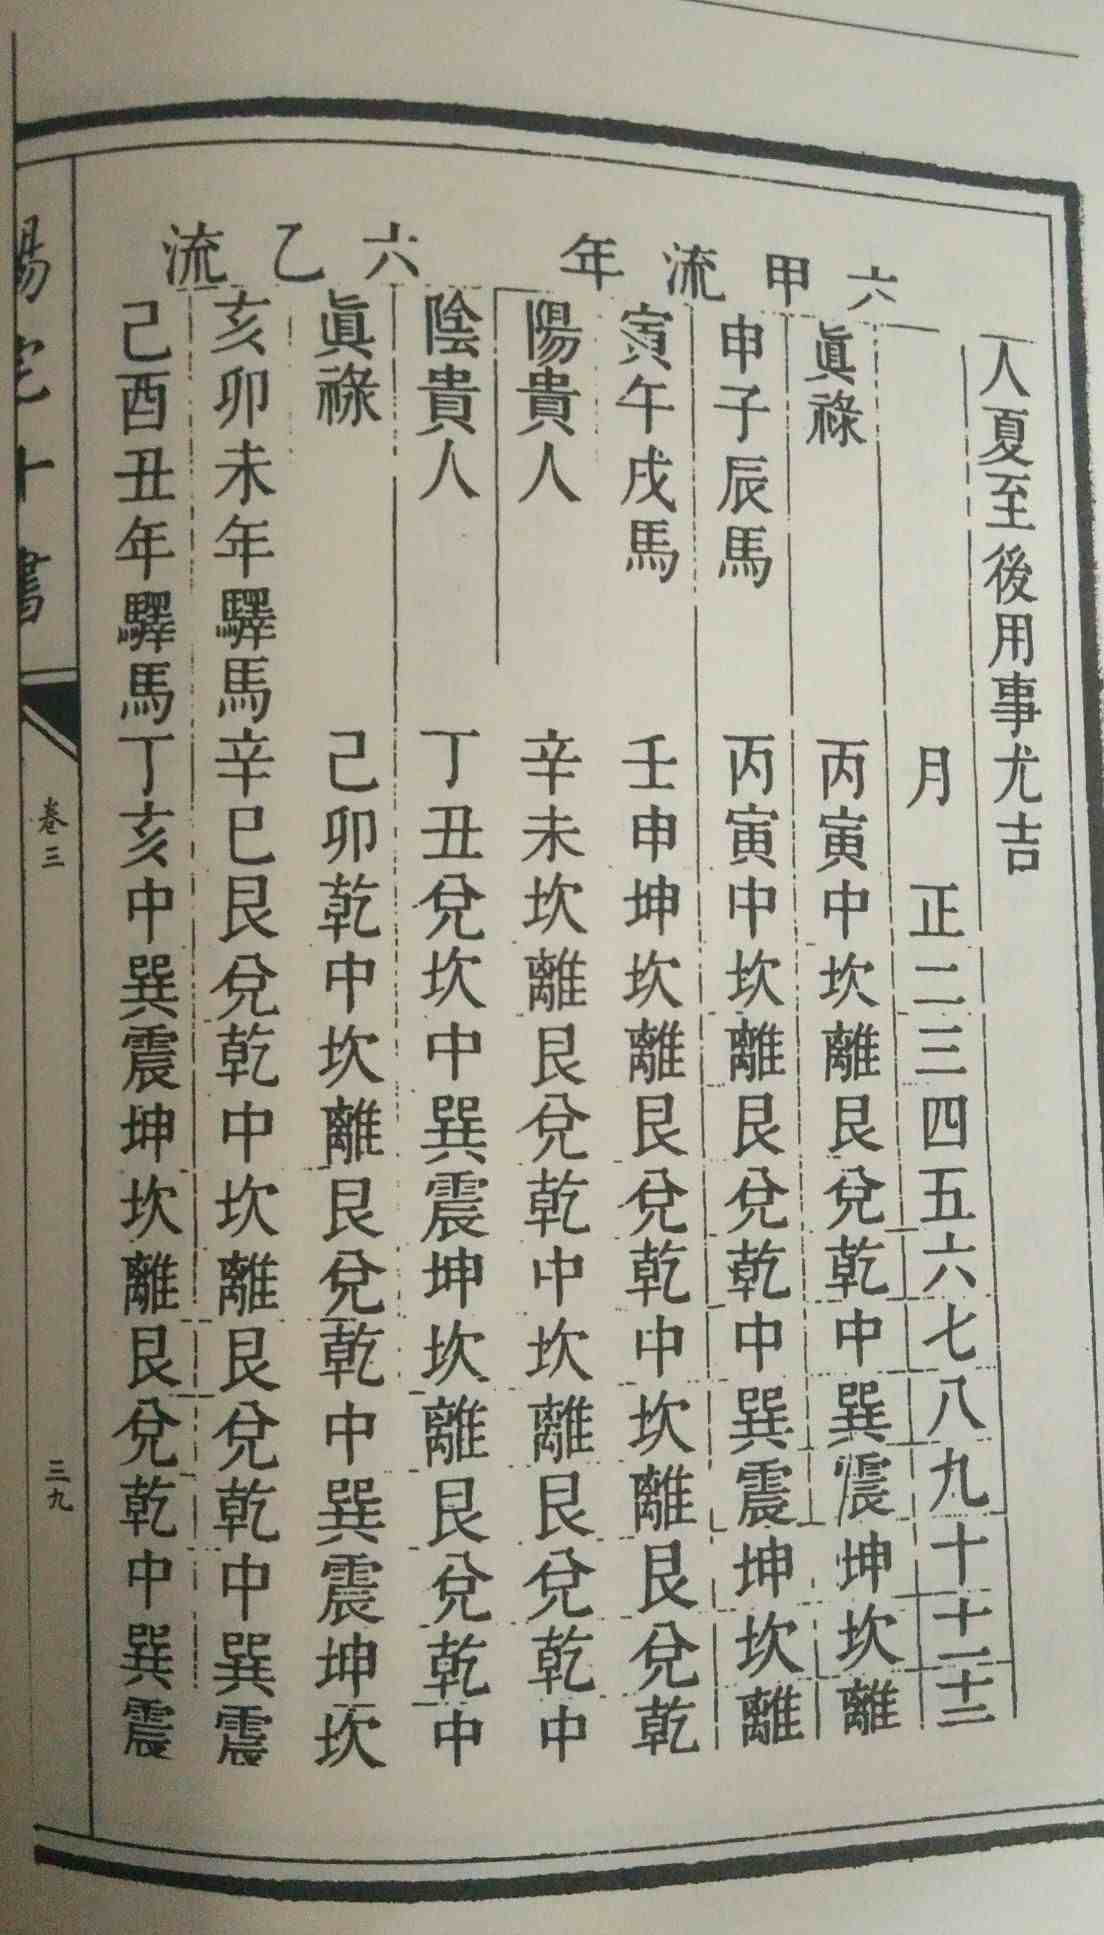 人夏至後用事尤吉
月 正 二 三 四 五 六 七 八 九 十 十一 十二
六甲流年
眞祿 丙寅 中 坎 離 艮 兌 乾 中 巽 震 坤 坎 離
申子辰馬 丙寅 中 坎 離 艮 兌 乾 中 巽 震 坤 坎 離
寅午戌馬 壬申 坤 坎 離 艮 兌 乾 中 坎 離 艮 兌 乾
陽貴人 辛未 坎 離 艮 兌 乾 中 坎 離 艮 兌 乾 中
陰貴人 丁丑 兌 坎 中 巽 震 坤 坎 離 艮 兌 乾 中
六乙流
眞祿 己卯 乾 中 坎 離 艮 兌 乾 中 巽 震 坤 坎
亥卯未年驛馬 辛巳 艮 兌 乾 中 坎 離 艮 兌 乾 中 巽 震
己酉丑年驛馬 丁亥 中 巽 震 坤 坎 離 艮 兌 乾 中 巽 震
陽宅十書
卷三
三九